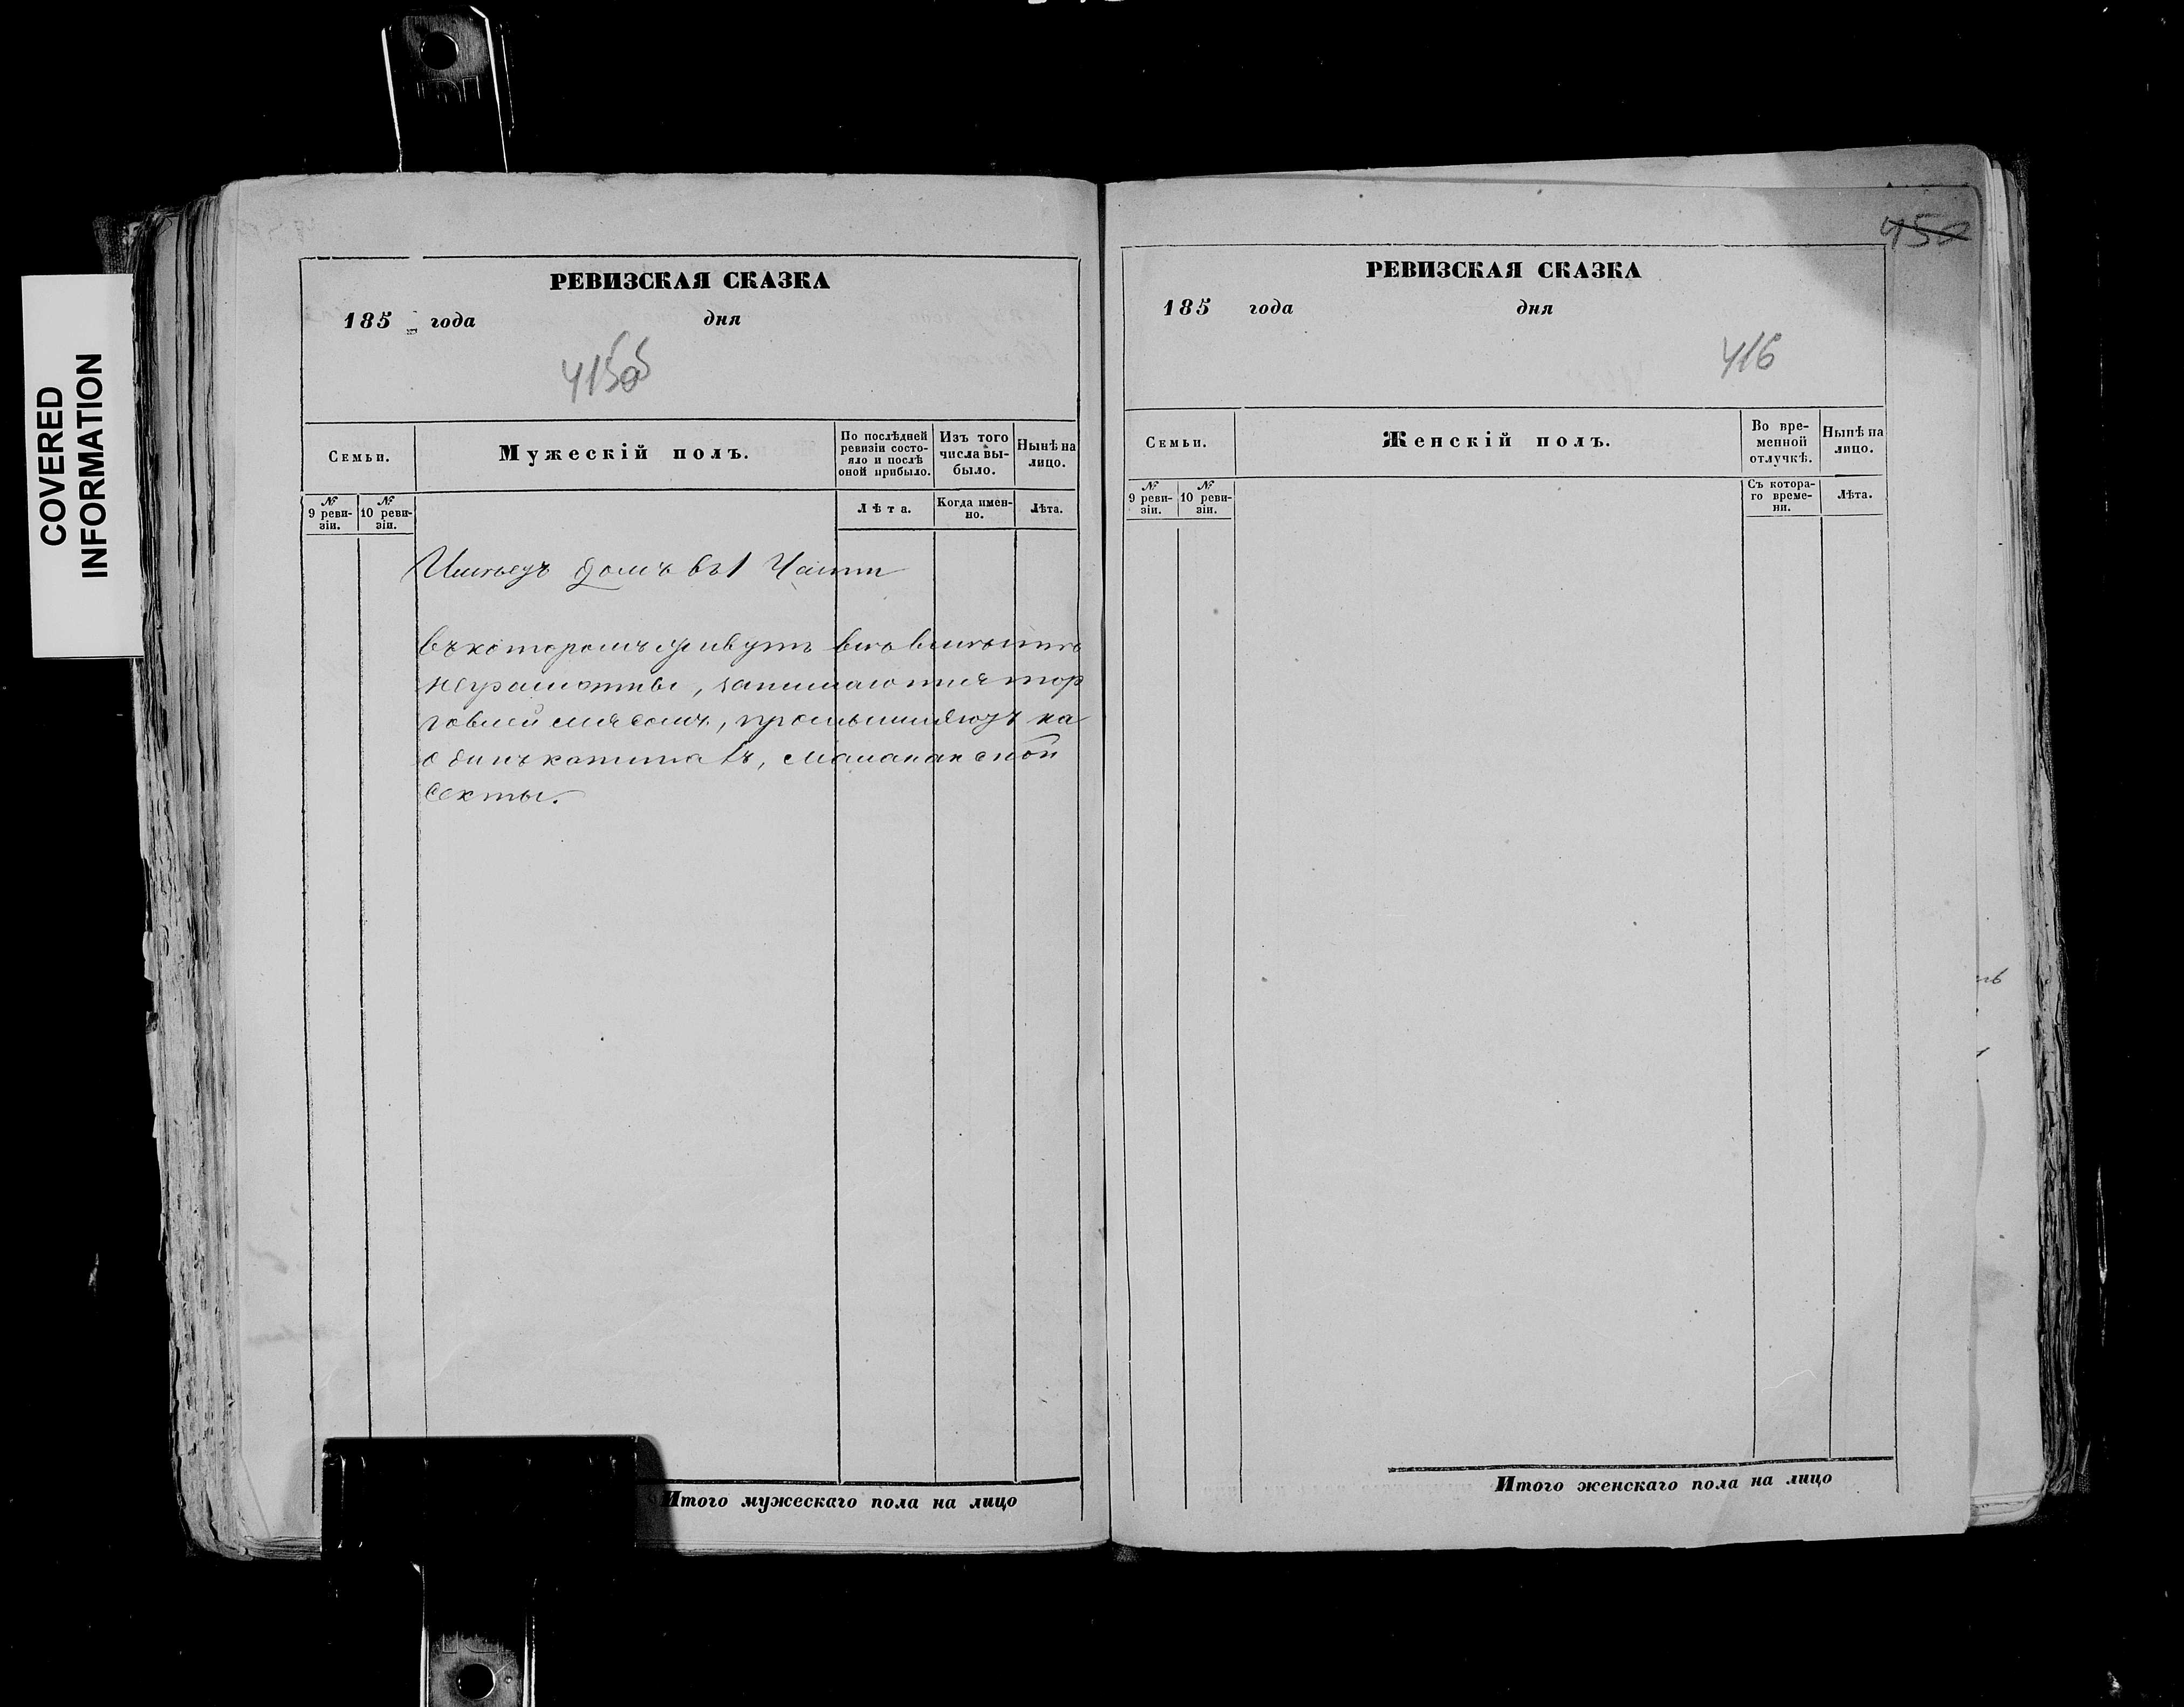 COVERED
INFORMATION
РЕВИЗСКАЯ СКАЗКА
185 года дня
415об
Семьи.
Мужескій полъ.
По послѣдней ревизіи состояло и послѣ оной прибыло.
Изъ того числа выбыло.
Нынѣ на лицо.
№ 9 ревизіи.
№ 10 ревизіи.
Лѣта.
Когда именно.
Лѣта.
Имѣютъ домъ въ 1 Части
въ которомъ живутъ всѣ вмѣстѣ
неграмотны, занимаются тор
говлей мясомъ, промышляютъ на
одинъ капиталъ, малаканской
секты.
Итого мужескаго пола на лицо
450
РЕВИЗСКАЯ СКАЗКА
185 года дня
416
Семьи.
Женскій полъ.
Во временной отлучкѣ.
Нынѣ на лицо.
№ 9 ревизіи.
№ 10 ревизіи.
Съ котораго времени.
Лѣта.
Итого женскаго пола на лицо